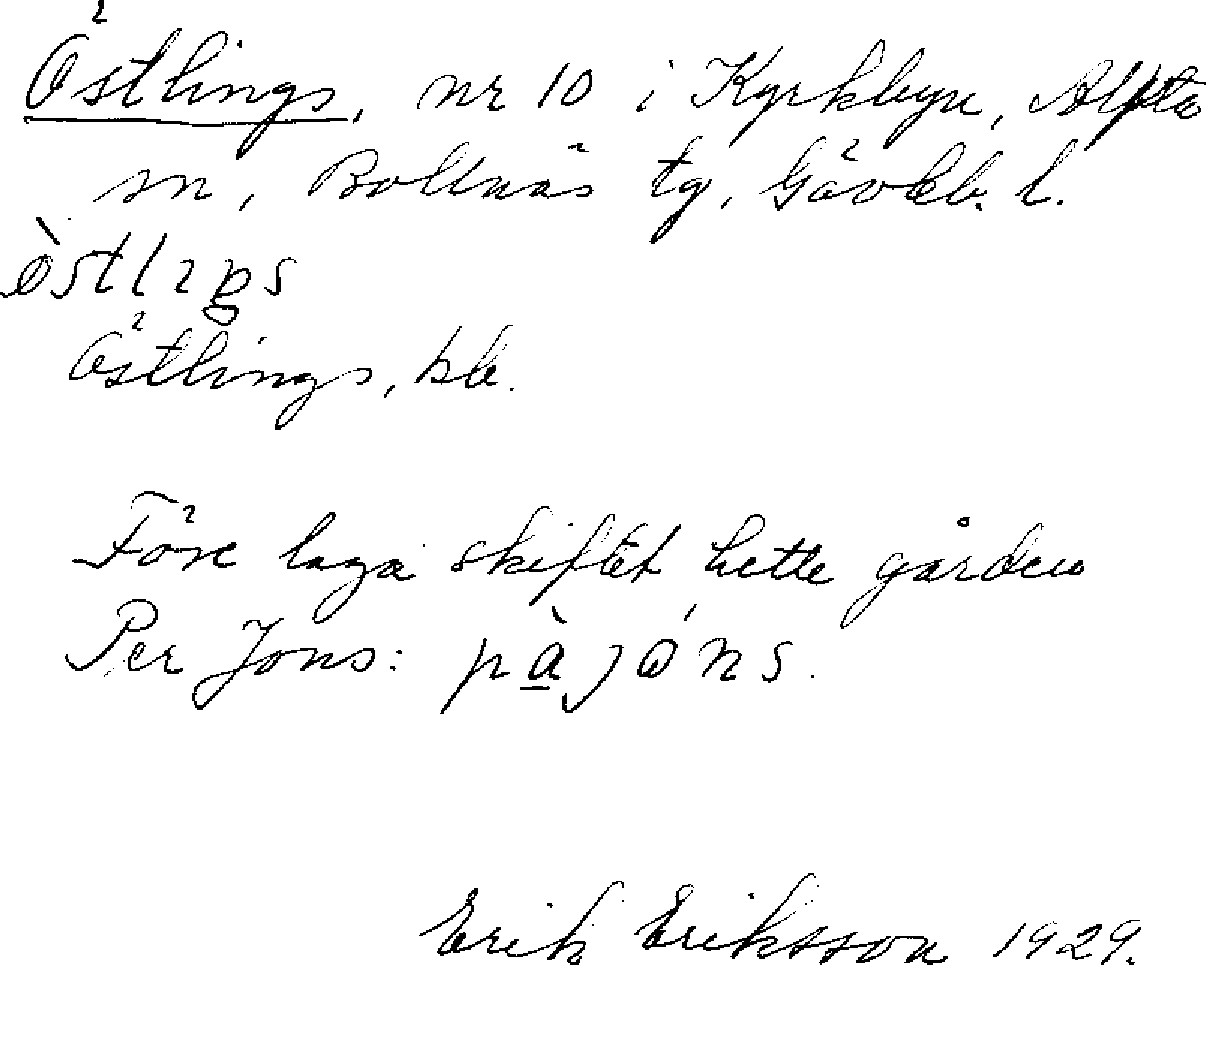 Östlings, nr 10 i Kyrkbyn, Alfta
sn, Bollnäs tg, Gävleb. l.
Östlings, kb.
Före laga skiftet hette gården
Per Jons: pàjóns.
Erik Eriksson 1929.